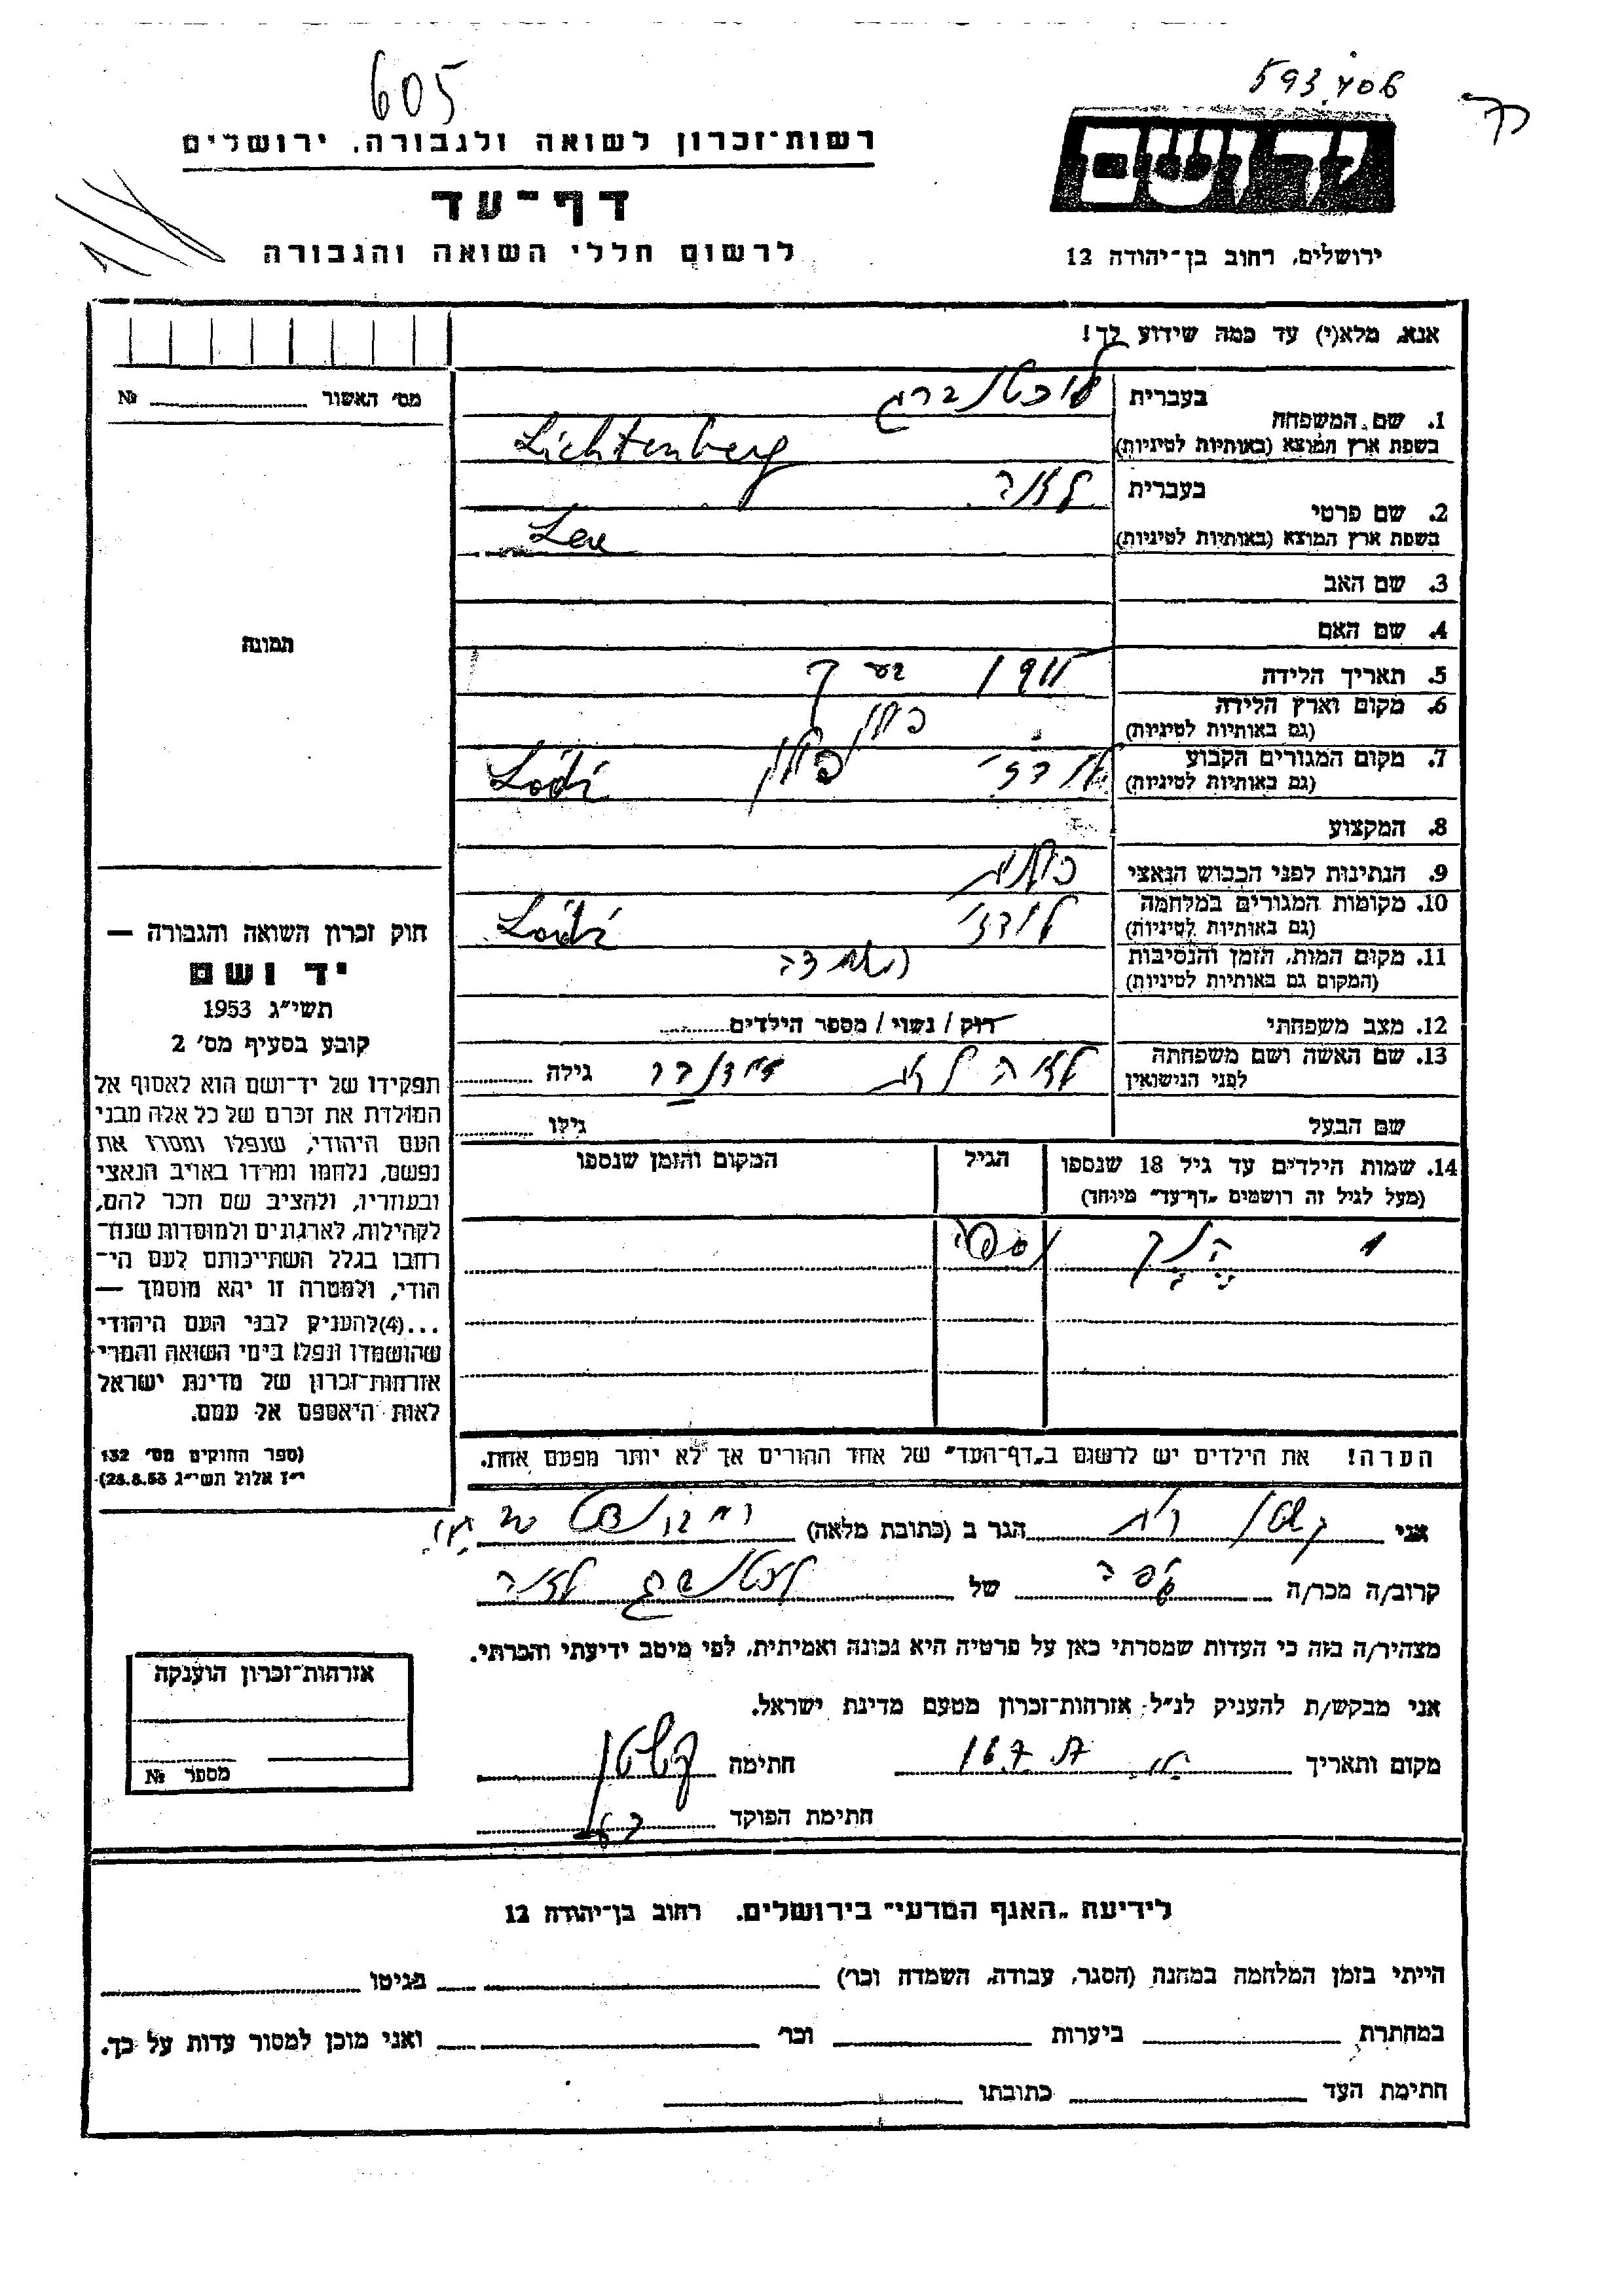 605
593406
רשות־זכרון לשואה ולגבורה, ירושלים
דף־עד
לרשום חללי השואה והגבורה
יד ושם
ירושלים, רחוב בן־יהודה 12
אנא, מלא(י) עד כמה שידוע לך!
מס' האשור № 
1. שם המשפחה
בעברית ליכטנברג
בשפת ארץ המוצא (באותיות לטיניות) Lichtenberg
2. שם פרטי
בעברית לאה
בשפת ארץ המוצא (באותיות לטיניות) Lea
3. שם האב
4. שם האם
תמונה
5. תאריך הלידה 1911
6. מקום וארץ הלידה
(גם באותיות לטיניות) פולין
7. מקום המגורים הקבוע
(גם באותיות לטיניות) לודז' פולין Lódź
8. המקצוע
9. הנתינות לפני הכבוש הנאצי פולנית
10. מקומות המגורים במלחמה
(גם באותיות לטיניות) לודז' Lódź
11. מקום המות, הזמן והנסיבות
(המקום גם באותיות לטיניות)
12. מצב משפחתי רוק / נשוי / מספר הילדים
13. שם האשה ושם משפחתה
לפני הנישואין לאה לבית גילה
שם הבעל גילו
14. שמות הילדים עד גיל 18 שנספו
(מעל לגיל זה רושמים „דף־עד" מיוחד)
הגיל
המקום והזמן שנספו
1
הערה! את הילדים יש לרשום ב„דף־העד" של אחד ההורים אך לא יותר מפעם אחת.
חוק זכרון השואה והגבורה —
יד ושם
תשי"ג 1953
קובע בסעיף מס' 2
תפקידו של יד־ושם הוא לאסוף אל
המולדת את זכרם של כל אלה מבני
העם היהודי, שנפלו ומסרו את
נפשם, נלחמו ומרדו באויב הנאצי
ובעוזריו, ולהציב שם וזכר להם,
לקהילות, לארגונים ולמוסדות שנח־
רבו בגלל השתייכותם לעם הי־
הודי, ולמטרה זו יהא מוסמך —
...(4) להעניק לבני העם היהודי
שהושמדו ונפלו בימי השואה והמרי
אזרחות־זכרון של מדינת ישראל
לאות היאספם אל עמם.
(ספר החוקים מס' 132
י"ז אלול תשי"ג 28.8.53)
אני הגר ב (כתובת מלאה)
קרוב/ה מכר/ה של ליכטנברג לאה
מצהיר/ה בזה כי העדות שמסרתי כאן על פרטיה היא נכונה ואמיתית, לפי מיטב ידיעתי והכרתי.
אני מבקש/ת להעניק לנ"ל אזרחות־זכרון מטעם מדינת ישראל.
מקום ותאריך חתימה
חתימת הפוקד
אזרחות־זכרון הוענקה
מספר №
לידיעת „האגף המדעי" בירושלים, רחוב בן־יהודה 12
הייתי בזמן המלחמה במחנה (הסגר, עבודה, השמדה וכו') בגיטו
במחתרת ביערות וכו' ואני מוכן למסור עדות על כך.
חתימת העד כתובתו